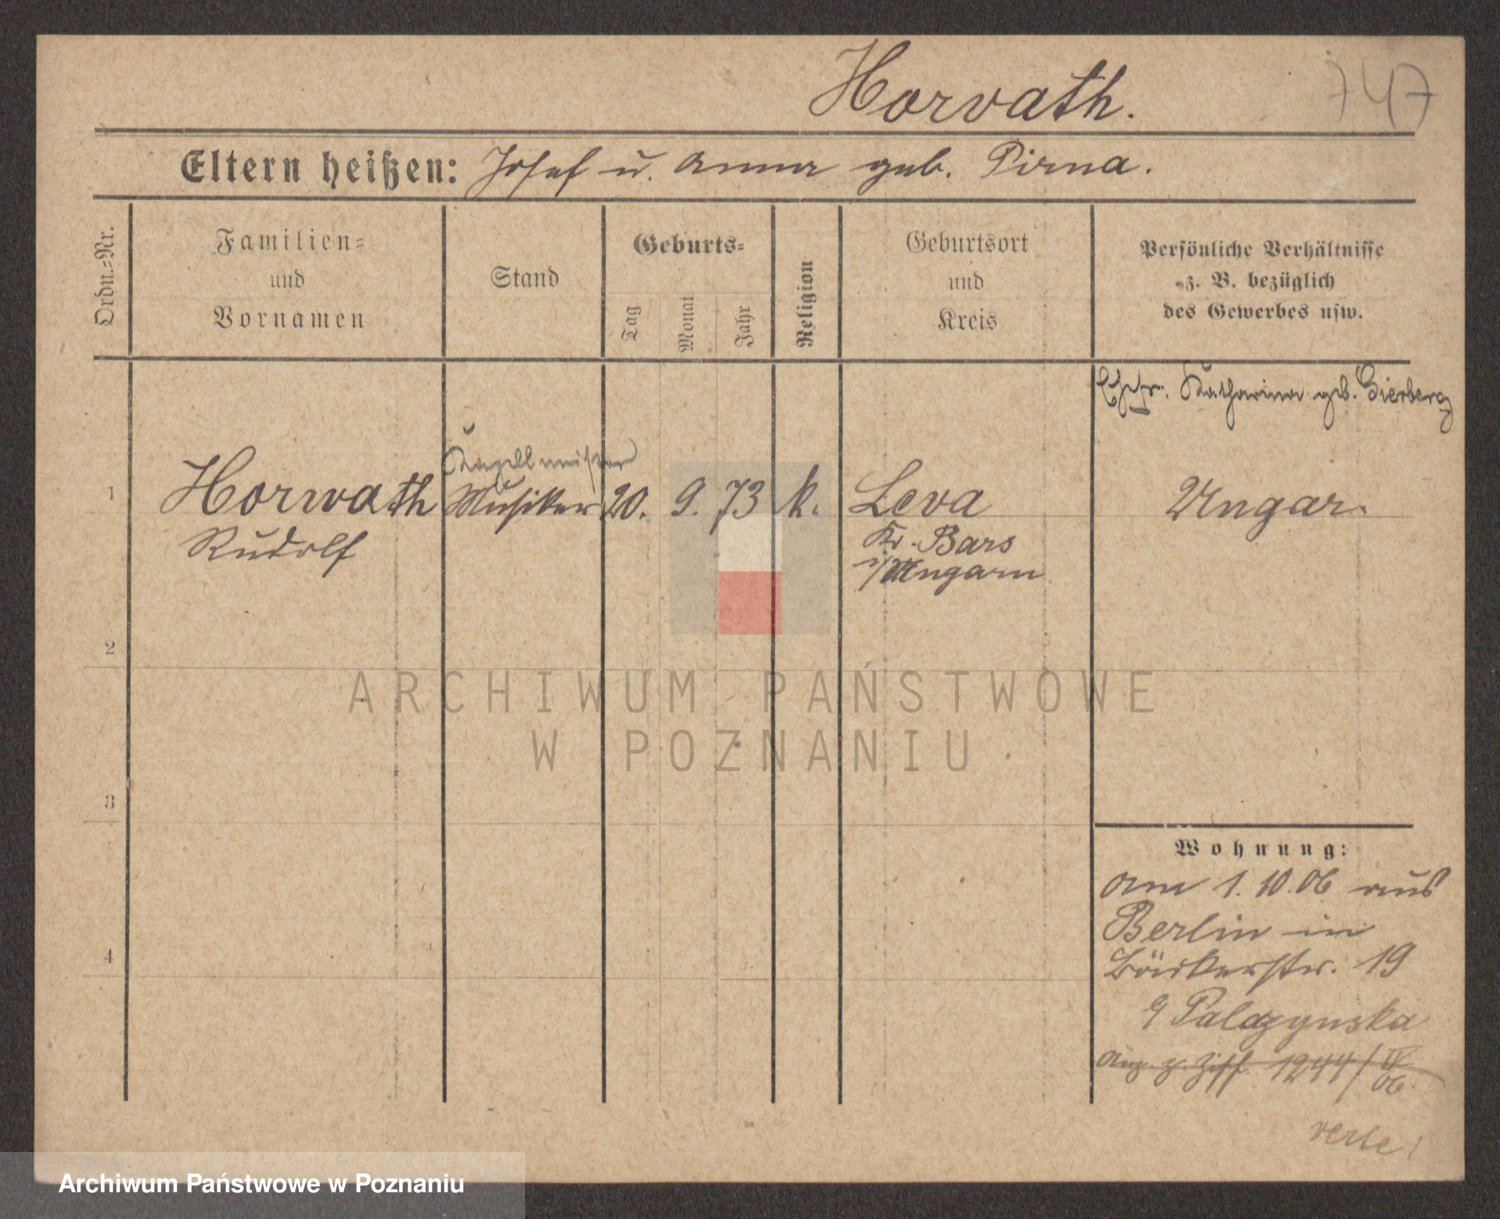 Horvath.
747
Eltern heißen: Josef u. Anna geb. Pirna.
Ordn.-Nr.
Familien-
und
Vornamen
Stand
Geburts-
Tag
Monat
Jahr
Religion
Geburtsort
und
Kreis
Persönliche Verhältnisse
z. B. bezüglich
des Gewerbes usw.
Ehefr. Katharina geb. Bierberg
Kapellmeister
1 Horwath Musiker 20. 9. 73 k. Leva Ungar.
Rudolf Kr. Bars
i/Ungarn
2
ARCHIWUM PAŃSTWOWE
W POZNANIU
3
Wohnung:
am 1.10.06 aus
Berlin in
Bäckerstr. 19
4
b/ Palczynska
1244/IV 06
Archiwum Państwowe w Poznaniu